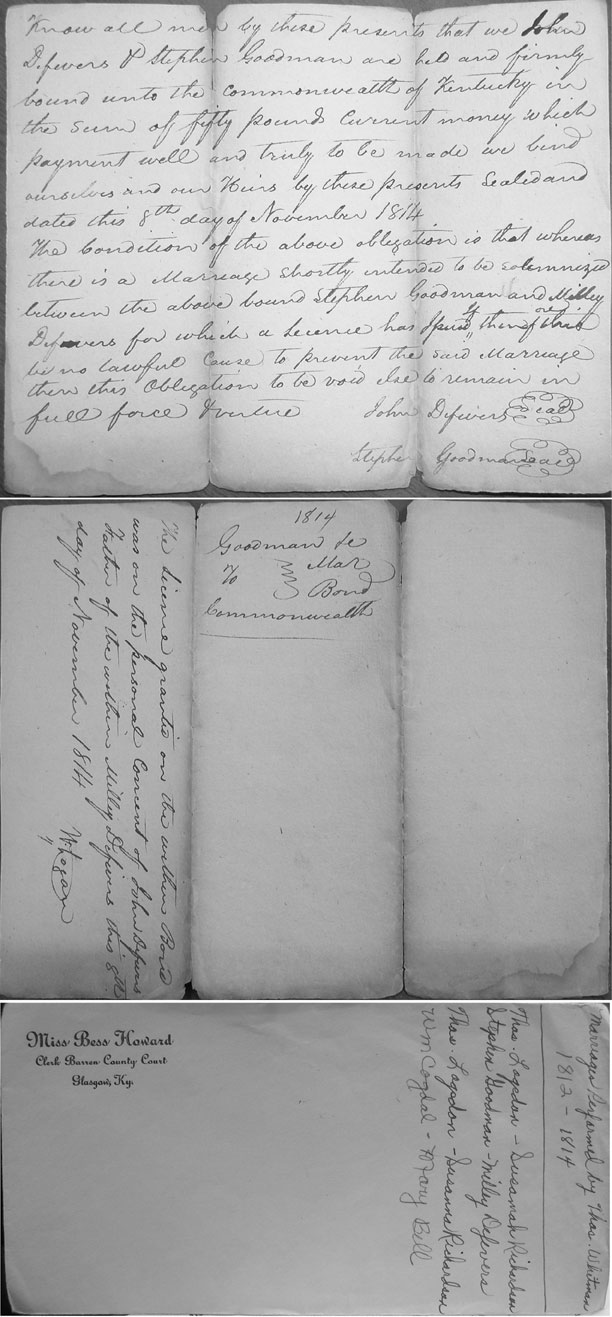 Know all men by these presents that we John
Defevers & Stephen Goodman are held and firmly
bound unto the Commonwealth of Kentucky in
the Sum of fifty pounds Current money which
payment well and truly to be made we bind
ourselves and our Heirs by these presents Sealed and
dated this 8th day of November 1814
The Condition of the above obligation is that whereas
there is a Marriage Shortly intended to be solemnized
between the above bound Stephen Goodman and Milley
Defevers for which a License has Issued if therefore there
be no lawful Cause to prevent the said Marriage
then this Obligation to be void else to remain in
full force & vertue John Defevers Seal
Stephen Goodman Seal
The License granted on the within Bond
was on the personal Concent of John Defevers
Father of the within Milley Defevers this 8th
day of November 1814
W Logan
1814
Goodman &c
To Mar
Bond
Commonwealth
Miss Bess Howard
Clerk Barren County Court
Glasgow, Ky.
Marriages Performed by Thos. Whitman
1812 - 1814
Thos. Logsdon - Susannah Richardson
Stephen Goodman - Milley Defevers
Thos. Logsdon - Susanna Richardson
Wm - Mary Bell